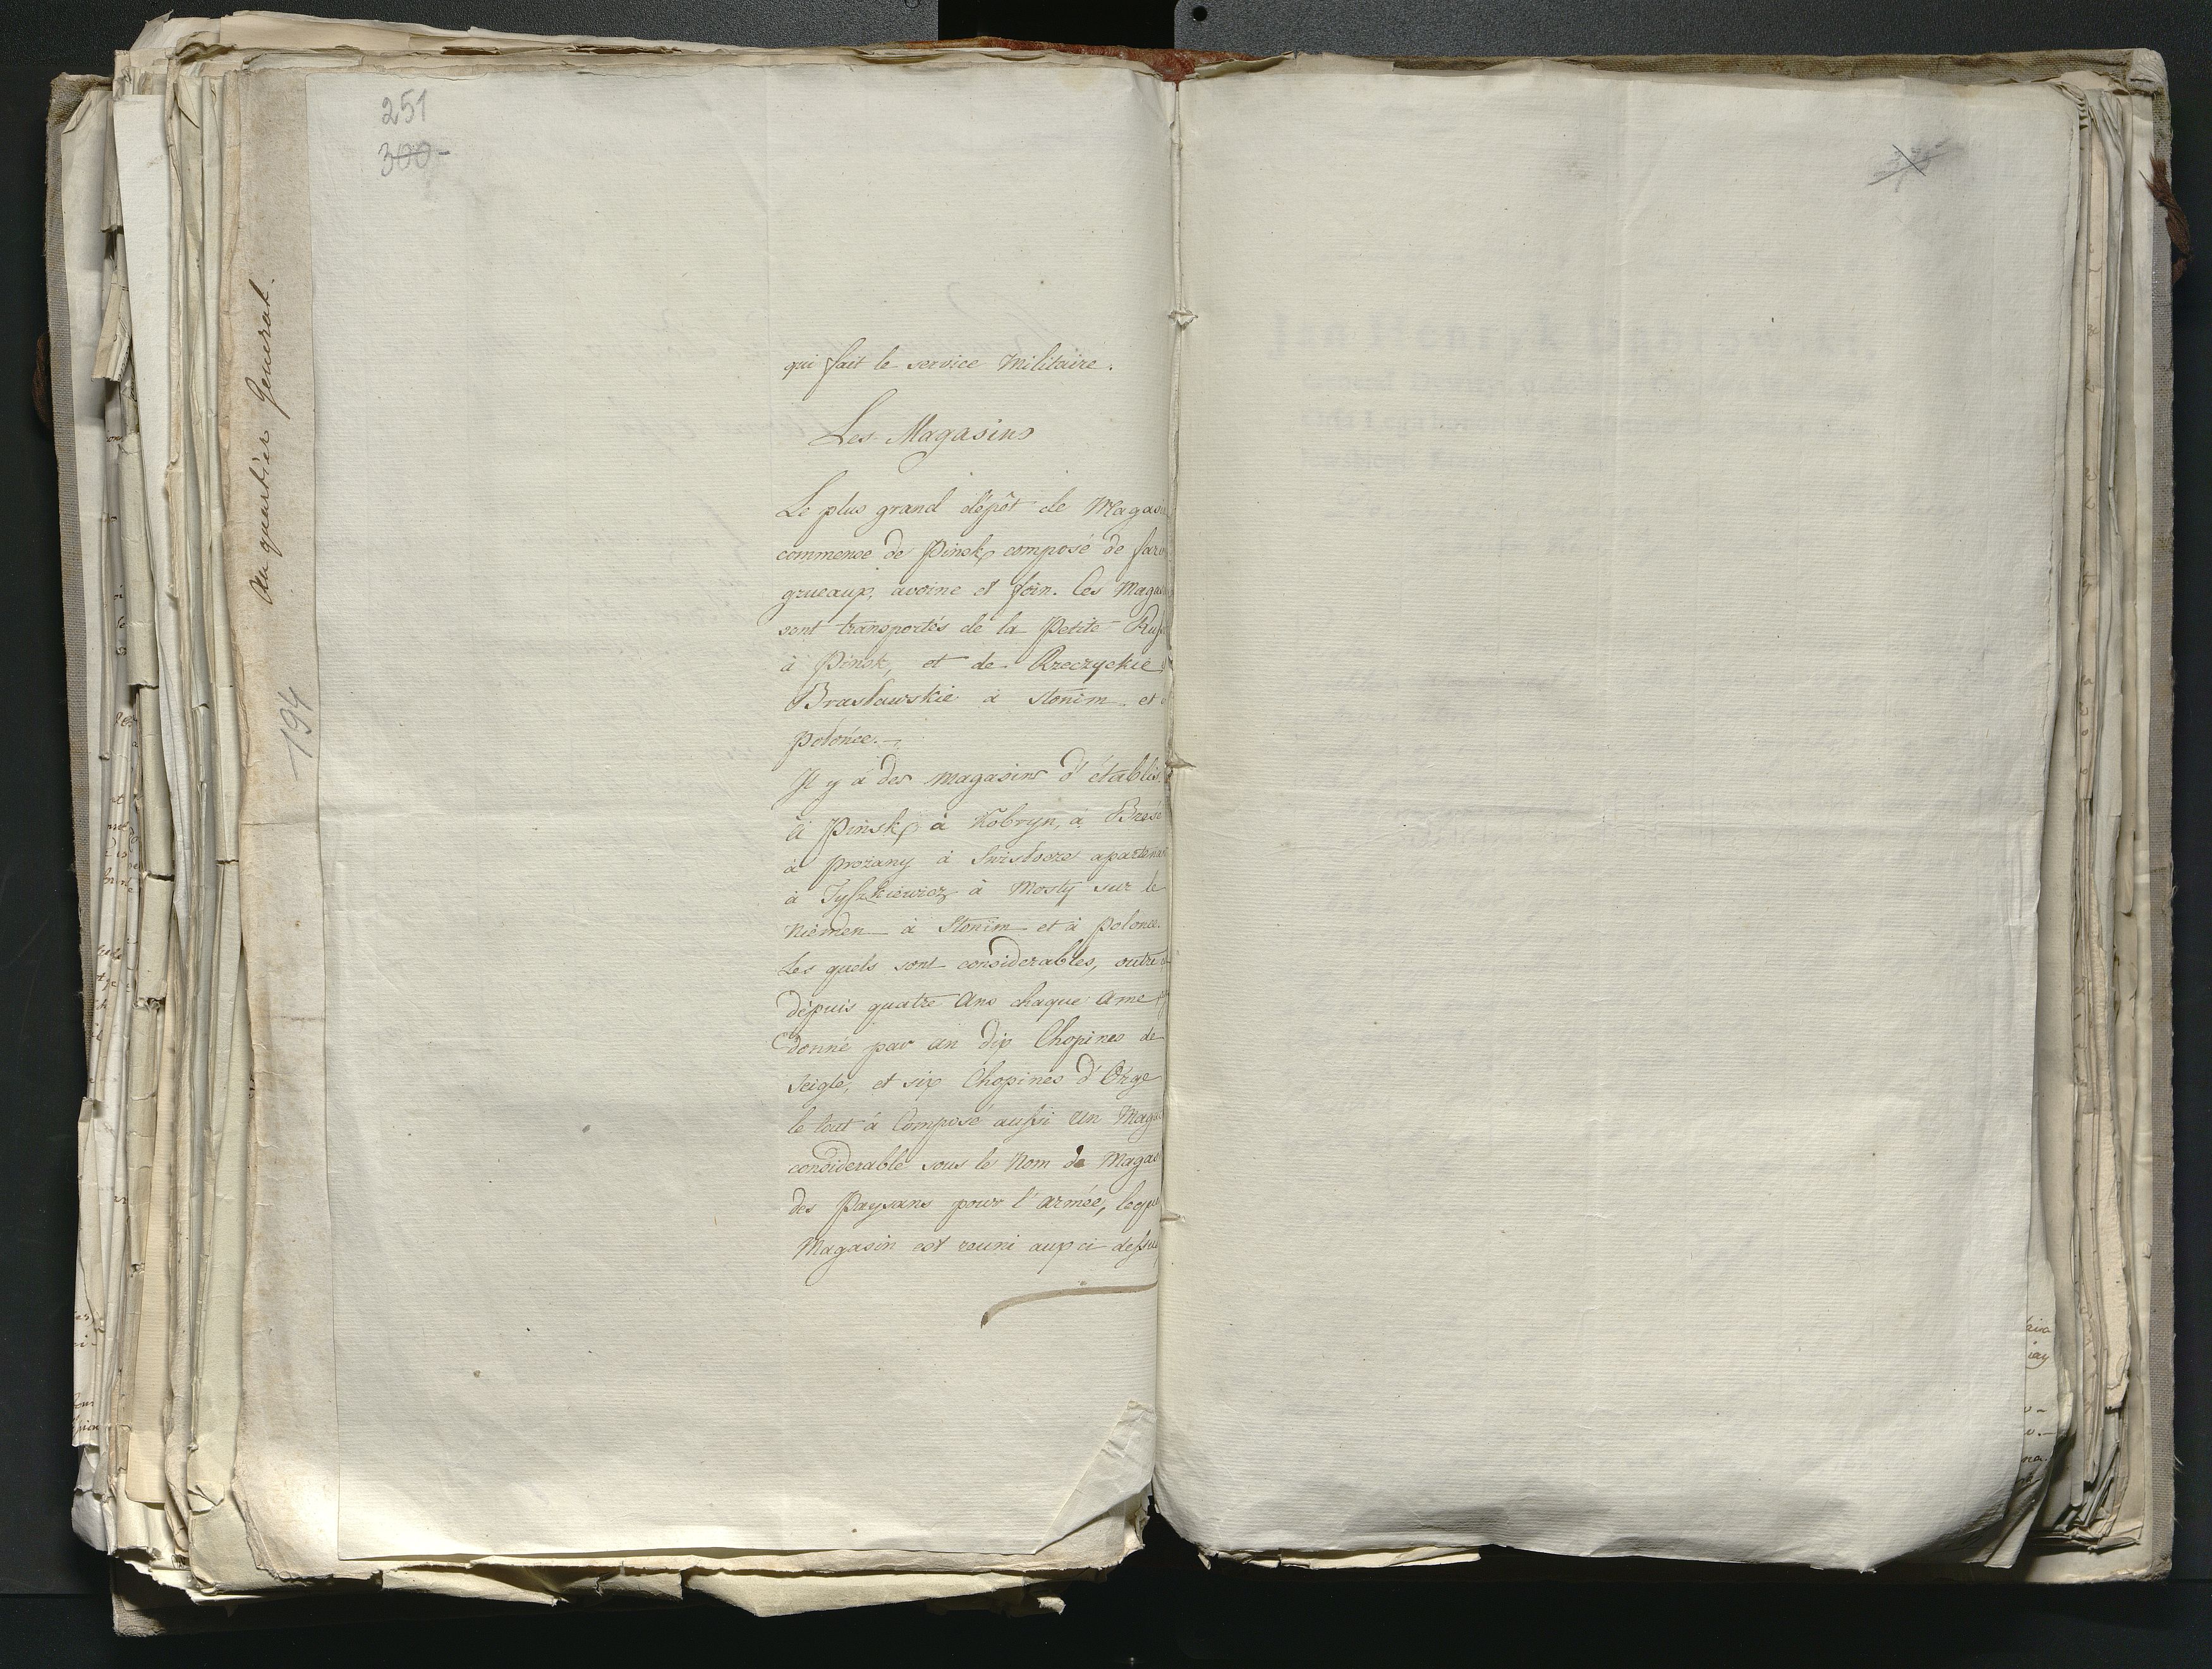 251
300
Au quartier General.
194
qui fait le service Militaire.
Les Magasins
Le plus grand dépôt de Magasi
commence de Pinsk, composé de fari
grueaux, avoine et foin. Ces Magas
sont transportés de la Petite Russ
à Pinsk, et de Rzeczyckie
Brasławskie à Słonim et
Połonce.
Il y à des magasins d'établis
à Pinsk, à Kobryn, à Brześć
à Prozany à Swisłocz apartenan
à Tyszkiewicz à Mosty sur le
Niémen à Słonim et à Polonce.
Les quels sont considerables, outre
dépuis quatre Ans chaque Ame
donné par an dix Chopines de
Seigle, et six Chopines d'Orge
le tout à Composé aussi un Maga
considerable sous le Nom de Magas
des Paysans pour l'armée, lequ
Magasin est reuni aux ci dessus